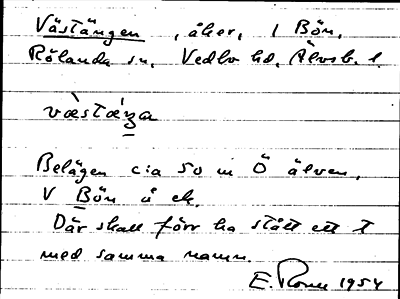 Västängen, åker, 1 Bön,
Rölanda sn, Vedbo hd, Älvsb. l.
væ̀stǽŋa
Belägen c:a 50 m Ö älven,
V Bön å ek.
Där skall förr ha stått ett t
med samma namn.
E. Ronn 1954